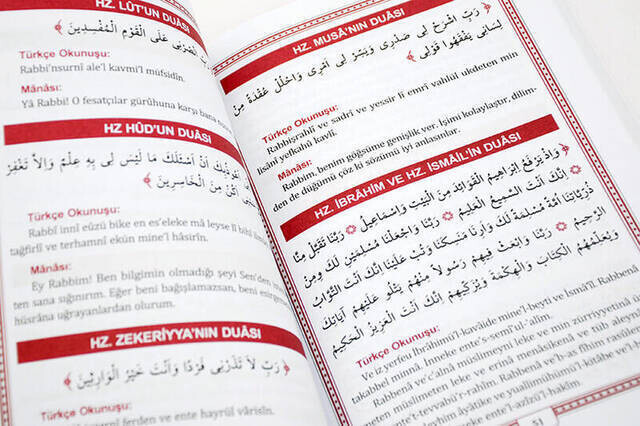 HZ. LÛT'UN DUÂSI
عَلَى الْقَوْمِ الْمُفْسِدِينَ
Türkçe Okunuşu:
Rabbi'nsurnî ale'l kavmi'l müfsidîn.
Mânâsı:
Yâ Rabbi! O fesatçılar gürûhuna karşı bana
HZ HÛD'UN DUÂSI
اَنْ اَسْئَلَكَ مَا لَيْسَ لِى بِهِ عِلْمٌ وَاِلاَّ تَغْفِرْ
اَكُنْ مِنَ الْخَاسِرِينَ
Türkçe Okunuşu:
Rabbî innî eûzü bike en es'eleke mâ leyse lî bihî
tağfirlî ve terhamnî ekün mine'l hâsirîn.
Mânâsı:
Ey Rabbim! Ben bilgimin olmadığı şeyi Sen'den
ten sana sığınırım. Eğer beni bağışlamazsan, beni
hüsrâna uğrayanlardan olurum.
HZ. ZEKERİYYA'NIN DUÂSI
رَبِّ لاَ تَذَرْنِى فَرْدًا وَاَنْتَ خَيْرُ الْوَارِثِينَ
Türkçe Okunuşu:
ferden ve ente hayrül vârisîn.
HZ. MUSA'NIN DUÂSI
رَبِّ اشْرَحْ لِى صَدْرِى وَيَسِّرْ لِى اَمْرِى وَاحْلُلْ عُقْدَةً مِنْ
لِسَانِى يَفْقَهُوا قَوْلِى
Türkçe Okunuşu:
Rabbişrahlî ve sadrî ve yessir lî emrî vahlül ukdeten min
lisânî yefkahû kavlî.
Mânâsı:
Rabbim, benim göğsüme genişlik ver. İşimi kolaylaştır, dilim-
den de düğümü çöz ki sözümü iyi anlasınlar.
HZ. İBRÂHÎM VE HZ. İSMAİL'İN DUÂSI
وَاِذْ يَرْفَعُ اِبْرَاهِيمُ الْقَوَاعِدَ مِنَ الْبَيْتِ وَاِسْمَاعِيلُ رَبَّنَا تَقَبَّلْ مِنَّا
اِنَّكَ اَنْتَ السَّمِيعُ الْعَلِيمُ رَبَّنَا وَاجْعَلْنَا مُسْلِمَيْنِ لَكَ وَمِنْ
ذُرِّيَّتِنَا اُمَّةً مُسْلِمَةً لَكَ وَاَرِنَا مَنَاسِكَنَا وَتُبْ عَلَيْنَا اِنَّكَ اَنْتَ التَّوَّابُ
الرَّحِيمُ رَبَّنَا وَابْعَثْ فِيهِمْ رَسُولاً مِنْهُمْ يَتْلُو عَلَيْهِمْ اٰيَاتِكَ
وَيُعَلِّمُهُمُ الْكِتَابَ وَالْحِكْمَةَ وَيُزَكِّيهِمْ اِنَّكَ اَنْتَ الْعَزِيزُ الْحَكِيمُ
Türkçe Okunuşu:
Ve iz yerfeu İbrahimü'l-kavâide mine'l-beyti ve İsmâîl. Rabbenâ
takabbel minnâ. İnneke ente's-semî'ul-alîm.
Rabbenâ ve'c'alnâ müslimeyni leke ve min zürriyyetinâ
meten müslimeten leke ve erinâ menâsikenâ ve tüb aleynâ
ente't-tevvabü'r-rahîm. Rabbenâ ve'b-as fîhim rasûlen
aleyhim âyâtike ve yuallimühümü'l-kitâbe ve'l-h
ente'l-azîzü'l-hakîm.
51